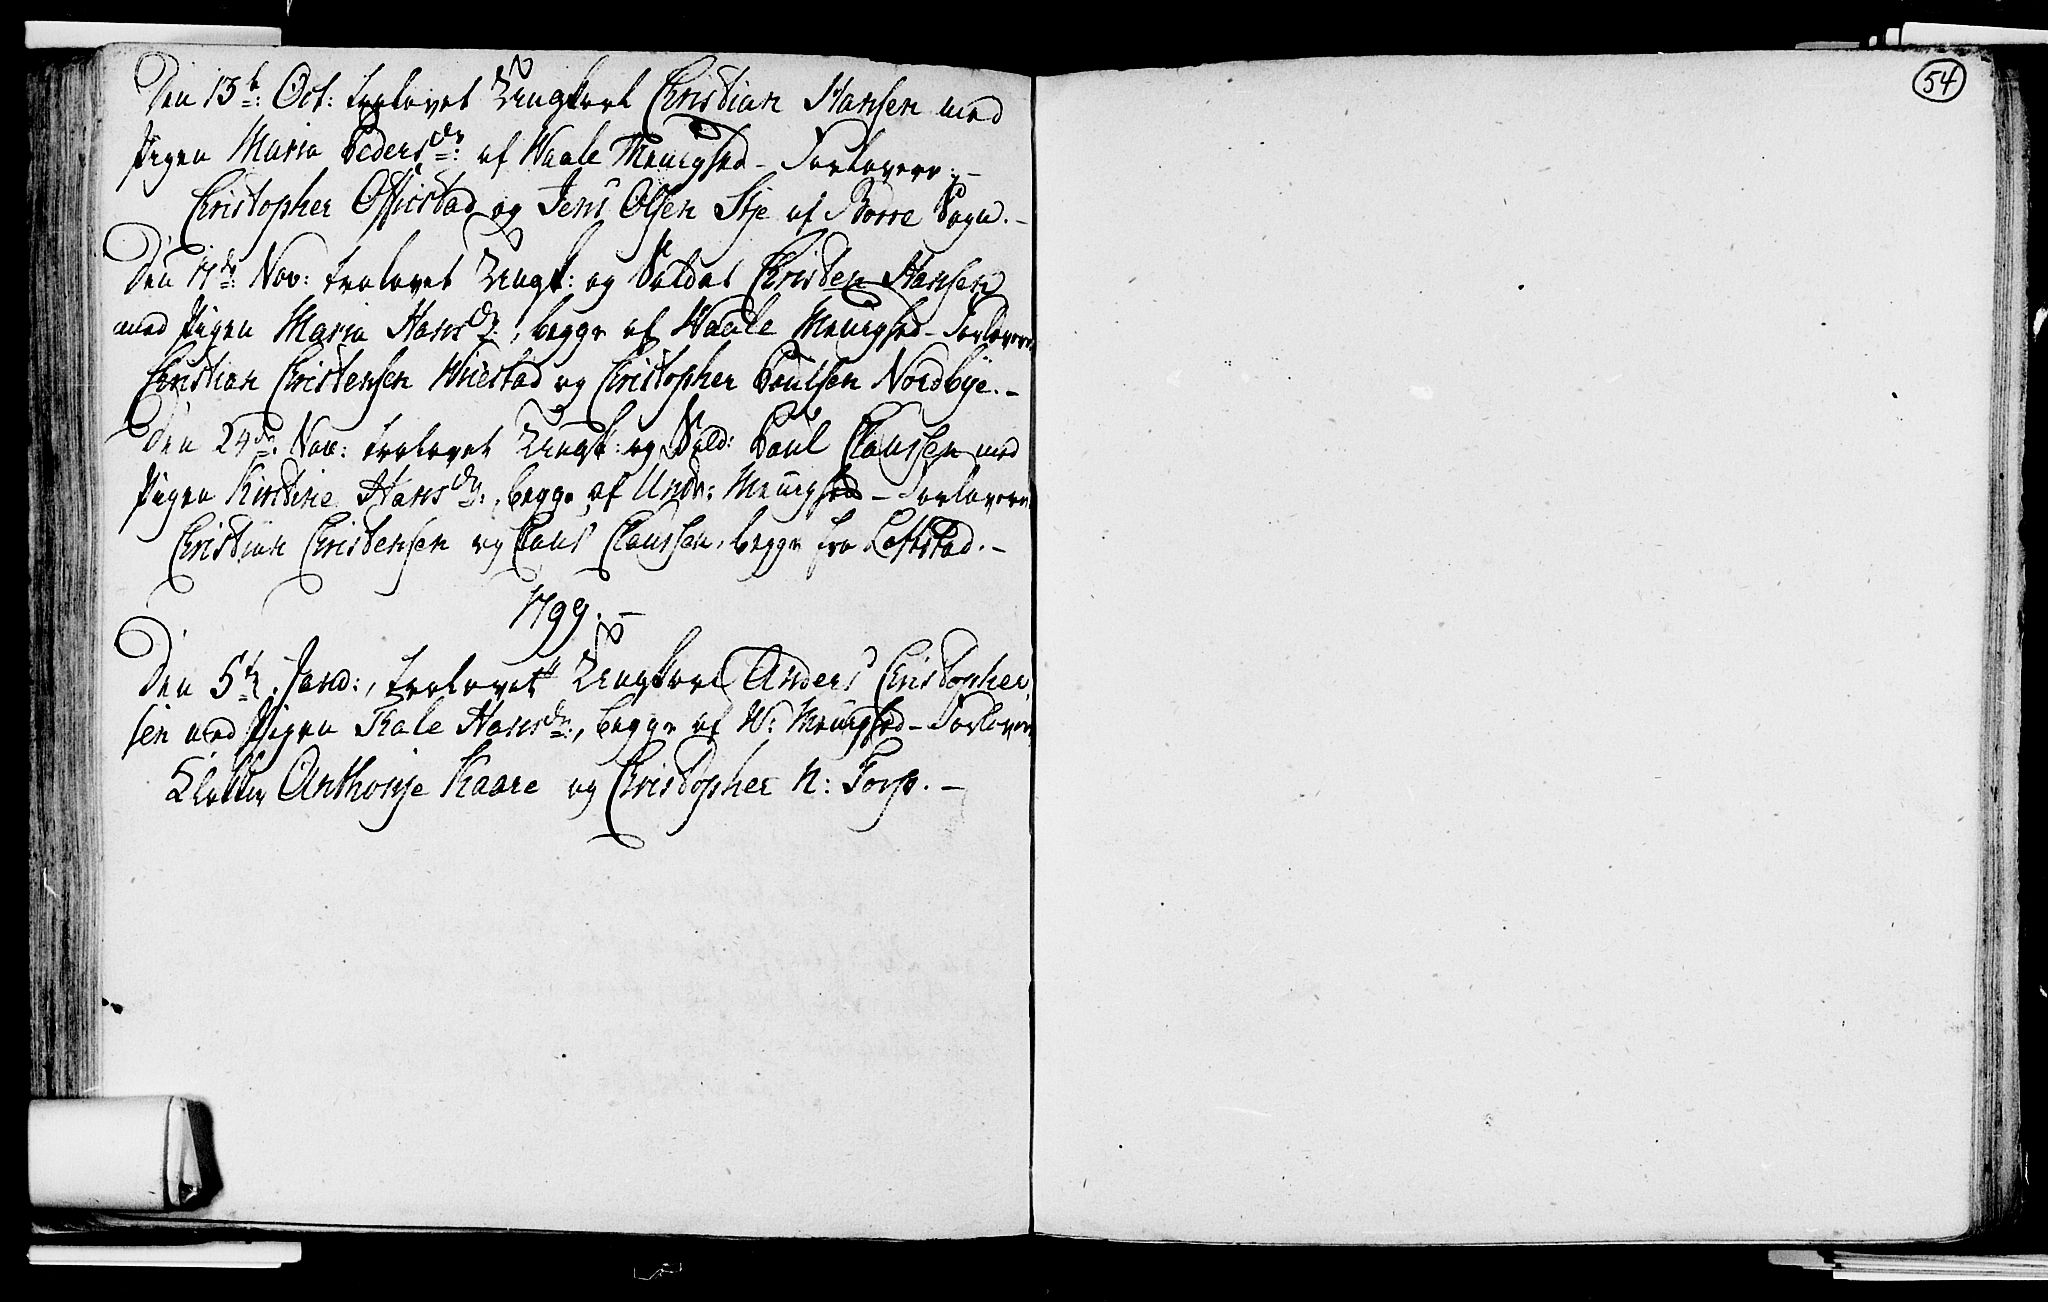 54
Den 13de: Oct: trolovet Ungkarl Christian Hansen med
Pigen Maria Pedersdr: af Waale Meenighed - Forlovere: -
Christopher Offiestad og Jens Olsen Stje af Borre Sogn. -
Den 17de: Nov: trolovet Ungk: og Soldat Christen Hansen
med Pigen Maria Hansdr:, begge af Waale Meenighed - Forlovere
Christian Christensen Wiiestad og Christopher Poulsen Nordbye. -
Den 24de: Nov: trolovet Ungk: og Sold: Poul Claussen med
Pigen Kirstine Hansdr:, begge af Undr: Meenighed - Forlovere
Christian Christensen og Claus Claussen, begge fra Loftstad. -
1799. -
Den 5te: Janv:, trolovet Ungkarl Anders Christopher,
sen med Pigen Thale Hansdr:, begge af W: Meenighed - Forlovere
Anthonje Kaare og Christopher N: Torp. -